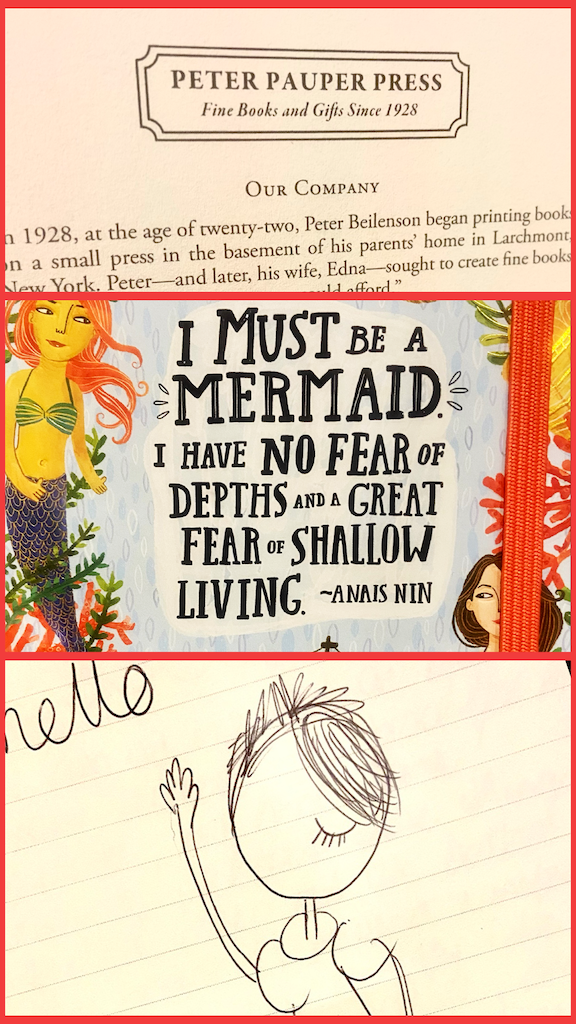 PETER PAUPER PRESS
Fine Books and Gifts Since 1928
OUR COMPANY
1928, at the age of twenty-two, Peter Beilenson began printing books
on a small press in the basement of his parents' home in Larchmont,
New York. Peter—and later, his wife, Edna—sought to create fine books
afford."
I MUST BE A
MERMAID.
I HAVE NO FEAR OF
DEPTHS AND A GREAT
FEAR OF SHALLOW
LIVING. ~ANAIS NIN
hello